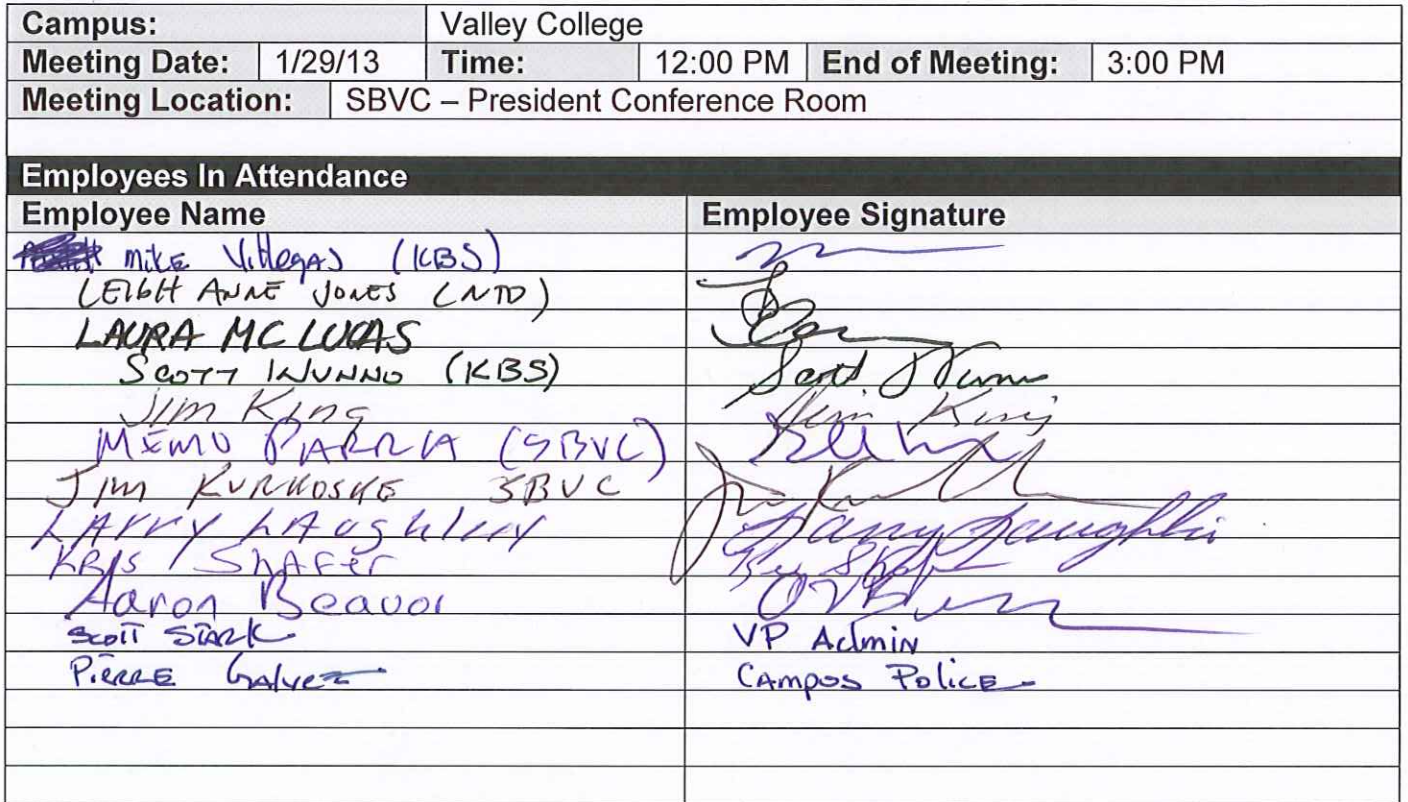 Campus: Valley College
Meeting Date: 1/29/13 Time: 12:00 PM End of Meeting: 3:00 PM
Meeting Location: SBVC – President Conference Room
Employees In Attendance
Employee Name Employee Signature
Mike Villegas (KBS)
LEIGH ANNE JONES (NTD)
LAURA MC LUCAS
SCOTT INUNNO (KBS) Scott
Jim King Jim King
MEMO PARRA (SBVC)
JIM KURKOSKE SBVC Jim
LArry LAughlin Larry Laughlin
KRIS SHAFER
Aaron Beavor
SCOTT STARK VP Admin
PIERRE GALVEZ CAMPUS POLICE